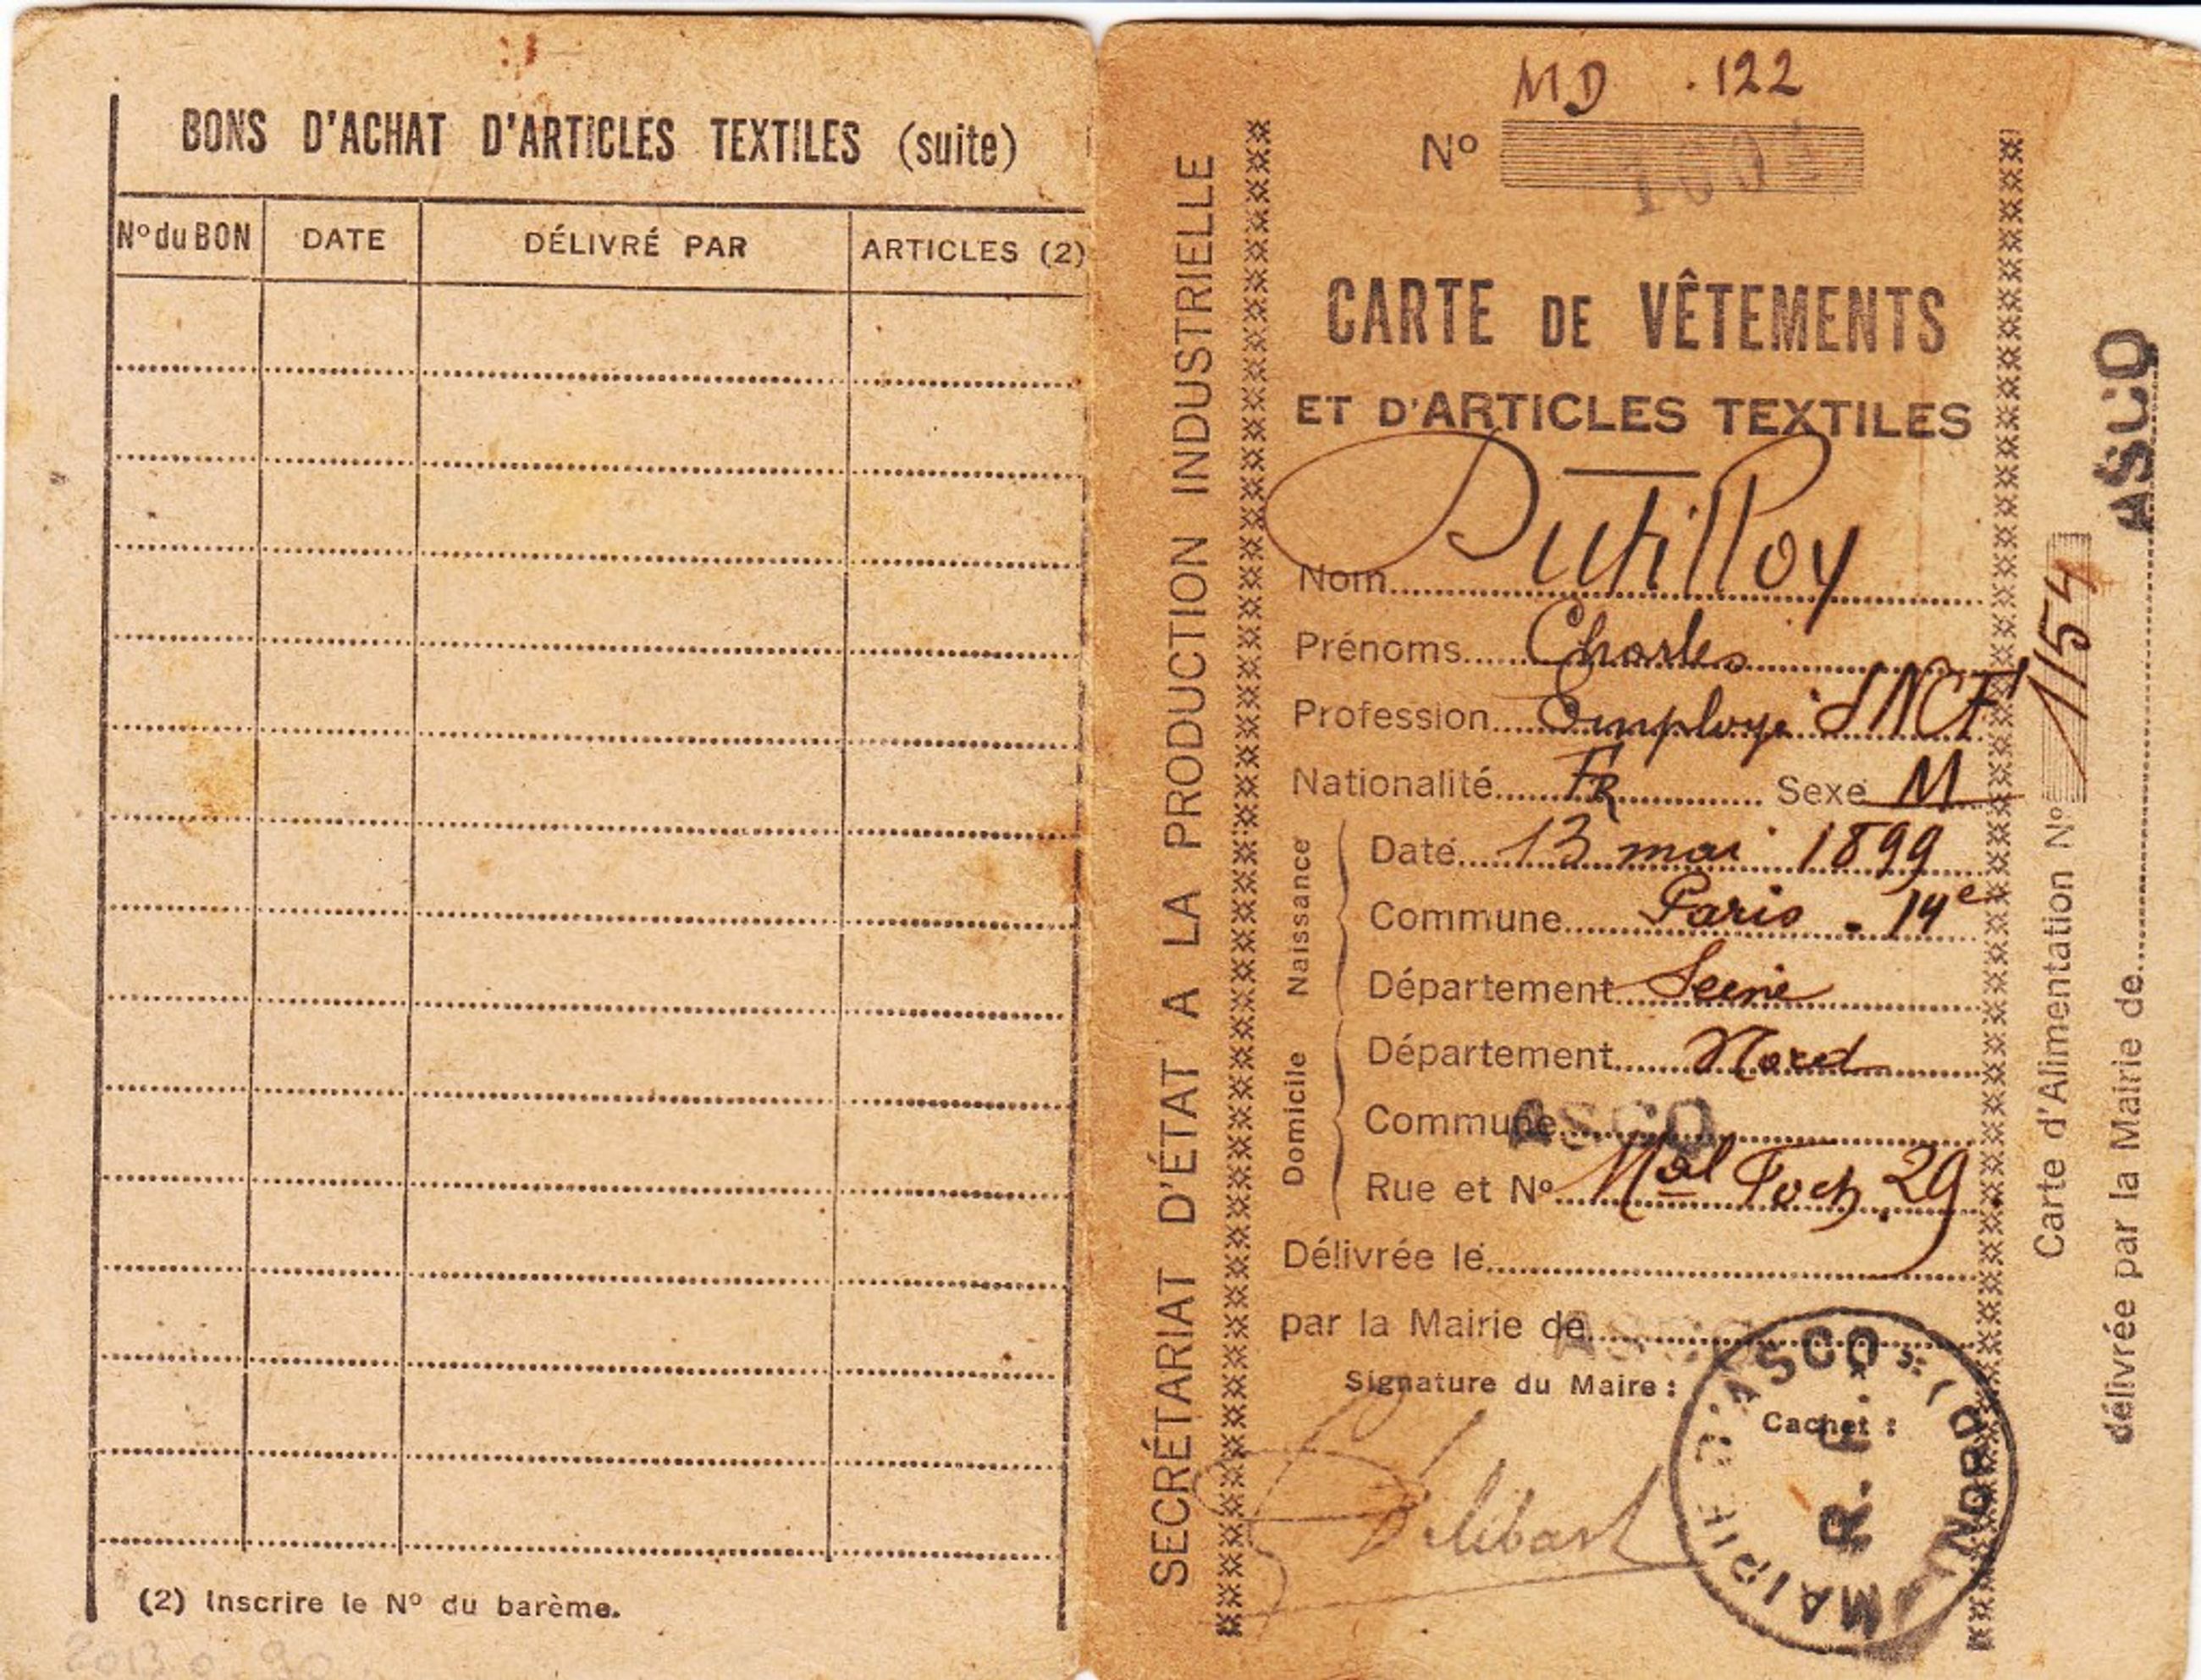 BONS D'ACHAT D'ARTICLES TEXTILES (suite)
Nº du BON DATE DÉLIVRÉ PAR ARTICLES (2)
(2) Inscrire le Nº du barème.
2013.0.90
SECRÉTARIAT D'ÉTAT A LA PRODUCTION INDUSTRIELLE
MD .122
Nº
CARTE DE VÊTEMENTS
ET D'ARTICLES TEXTILES
Nom Dutilloy
Prénoms Charles
Profession Employé SNCF
Nationalité FR Sexe M
Naissance
Date 13 mai 1899
Commune Paris - 14e
Département Seine
Domicile
Département Nord
Commune ASCQ
Rue et Nº Mal Foch 29
Délivrée le
par la Mairie de ASCQ
Signature du Maire :
Cachet :
Delebart
MAIRIE D'ASCQ (NORD)
R.F.
Carte d'Alimentation Nº 1154
délivrée par la Mairie de ASCQ